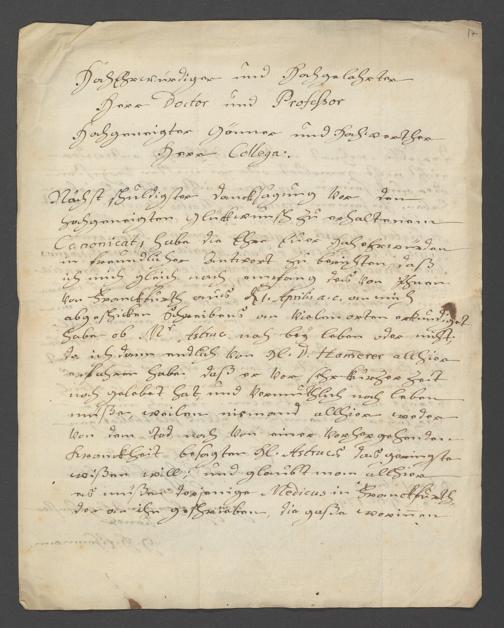 17
HochEhrwürdiger und Hochgelahrter
Herr Doctor und Professor
Hochgeneigter Gönner und Hochwerther
Herr Collega.
Nächst schuldigster dancksagung vor den
hochgeneigten glückwunsch zu erhaltenem
Canonicat, habe die Ehre Euer HochEhrwürden
in freundlicher Antwort zu berichten daß
ich mich gleich nach empfang des von Ihnen
von Franckfurth aus d. 1. Aprilis a. c. an mich
abgeschickten Schreibens an vielen orten erkundiget
habe ob Mr Astruc noch bey leben oder nicht.
da ich dann endlich von H. D. Hamerer allhier
erfahren habe daß er vor sehr kurtzer Zeit
noch gelebet hat und vermuthlich noch leben
müße, weilen niemand allhier weder
von dem Tod noch von einer vorhergehenden
Kranckheit besagten H. Astrucs das geringste
wißen will; und glaubt man allhier
es müße derjenige Medicus in Franckfurth
der an ihn geschrieben, die gaße worinnen